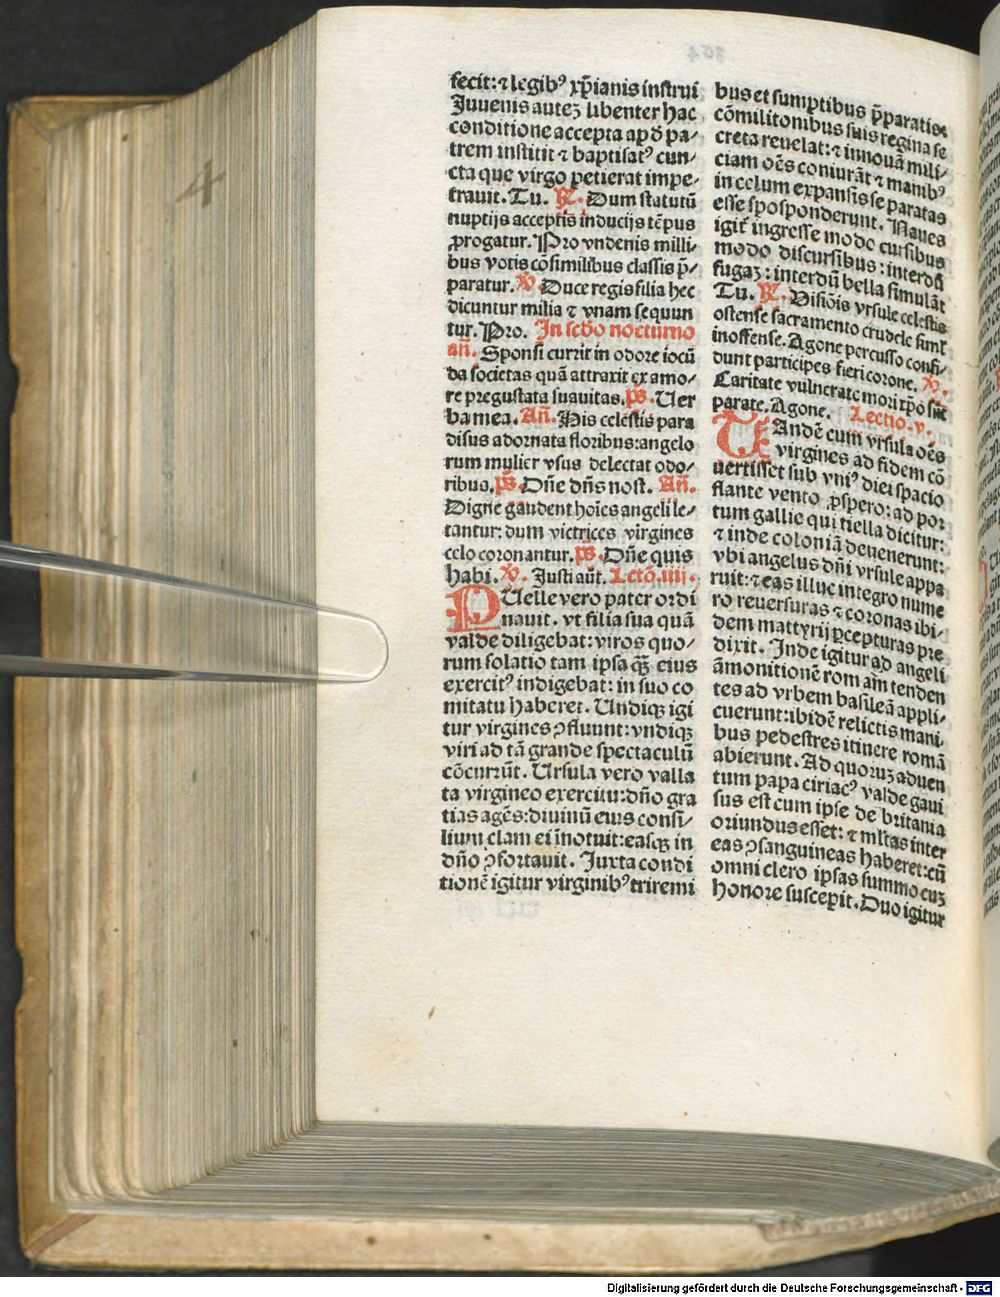 4
fecit: ⁊ legibꝰ xp̄ianis instrui
Juuenis auteʒ libenter hac
conditione accepta apd̄ pa-
trem institit ⁊ baptisatꝰ cun-
cta que virgo petierat impe-
trauit. Tu. R̄. Dum statutū
nuptijs acceptis inducijs tēpus
ꝓrogatur. Pro vndenis milli-
bus votis cōsimilibus classis p̄-
paratur. V̄. Duce regis filia hec
dicuntur milia ⁊ vnam sequun
tur. Pro. In scd̄o nocturno
an̄. Sponsi currit in odore iocū
da societas quā attraxit ex amo-
re pregustata suauitas. ps̄. Uer
ba mea. An̄. His celestis para
disus adornata floribus: angelo
rum mulier vsus delectat odo-
ribus. ps̄. Dn̄e dn̄s nost. An̄.
Digne gaudent hoīes angeli le-
tantur: dum victrices virgines
celo coronantur. ps̄. Dn̄e quis
habi. V̄. Justi aūt. Lectō. iiij.
PUelle vero pater ordi
nauit. vt filia sua quā
valde diligebat: viros quo-
rum solatio tam ipsa qꝫ eius
exercitꝰ indigebat: in suo co
mitatu haberet. Undiqꝫ igi
tur virgines ꝯfluunt: vndiqꝫ
viri ad tā grande spectaculū
cōcurrūt. Ursula vero valla
ta virgineo exercitu: dn̄o gra
tias agēs: diuinū eius consi-
lium clam ei īnotuit: easqꝫ in
dn̄o ꝯfortauit. Juxta condi
tionē igitur virginibꝰ triremi
bus et sumptibus p̄paratis:
cōmilitonibus suis regina se
creta reuelat: ⁊ innouā mili-
ciam oēs coniurāt ⁊ manibꝰ
in celum expansis se paratas
esse spoponderunt. Naues
igit̄ ingresse modo cursibus
modo discursibus: interdū
fugaʒ: interdū bella simulāt
Tu. R̄. Visiōis vrsule celestis
ostense sacramento crudele funꝰ
inoffense. Agone percusso confi-
dunt participes fieri corone. V̄.
Caritate vulnerate mori xp̄o sūt
parate. Agone. Lectio. v.
UAndē cum vrsula oēs
virgines ad fidem cō
uertisset sub vniꝰ diei spacio
flante vento ꝓspero: ad por
tum gallie qui tiella dicitur:
⁊ inde coloniā deuenerunt:
vbi angelus dn̄i vrsule appa
ruit: ⁊ eas illuc integro nume
ro reuersuras ⁊ coronas ibi-
dem martyrij ꝑcepturas pre
dixit. Inde igitur ad angeli
āmonitionē romam tenden
tes ad vrbem basileā appli-
cuerunt: ibidē relictis naui-
bus pedestres itinere romā
abierunt. Ad quoruʒ aduen
tum papa ciriacꝰ valde gaui
sus est cum ipse de britania
oriundus esset: ⁊ ml̄tas inter
eas ꝯsanguineas haberet: cū
omni clero ipsas summo cuʒ
honore suscepit. Duo igitur
Digitalisierung gefördert durch die Deutsche Forschungsgemeinschaft - DFG